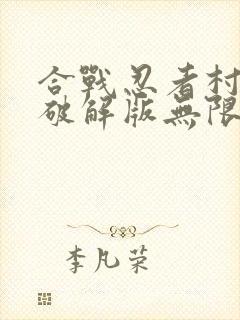 合戰忍者村
破解版無限
李凡荣